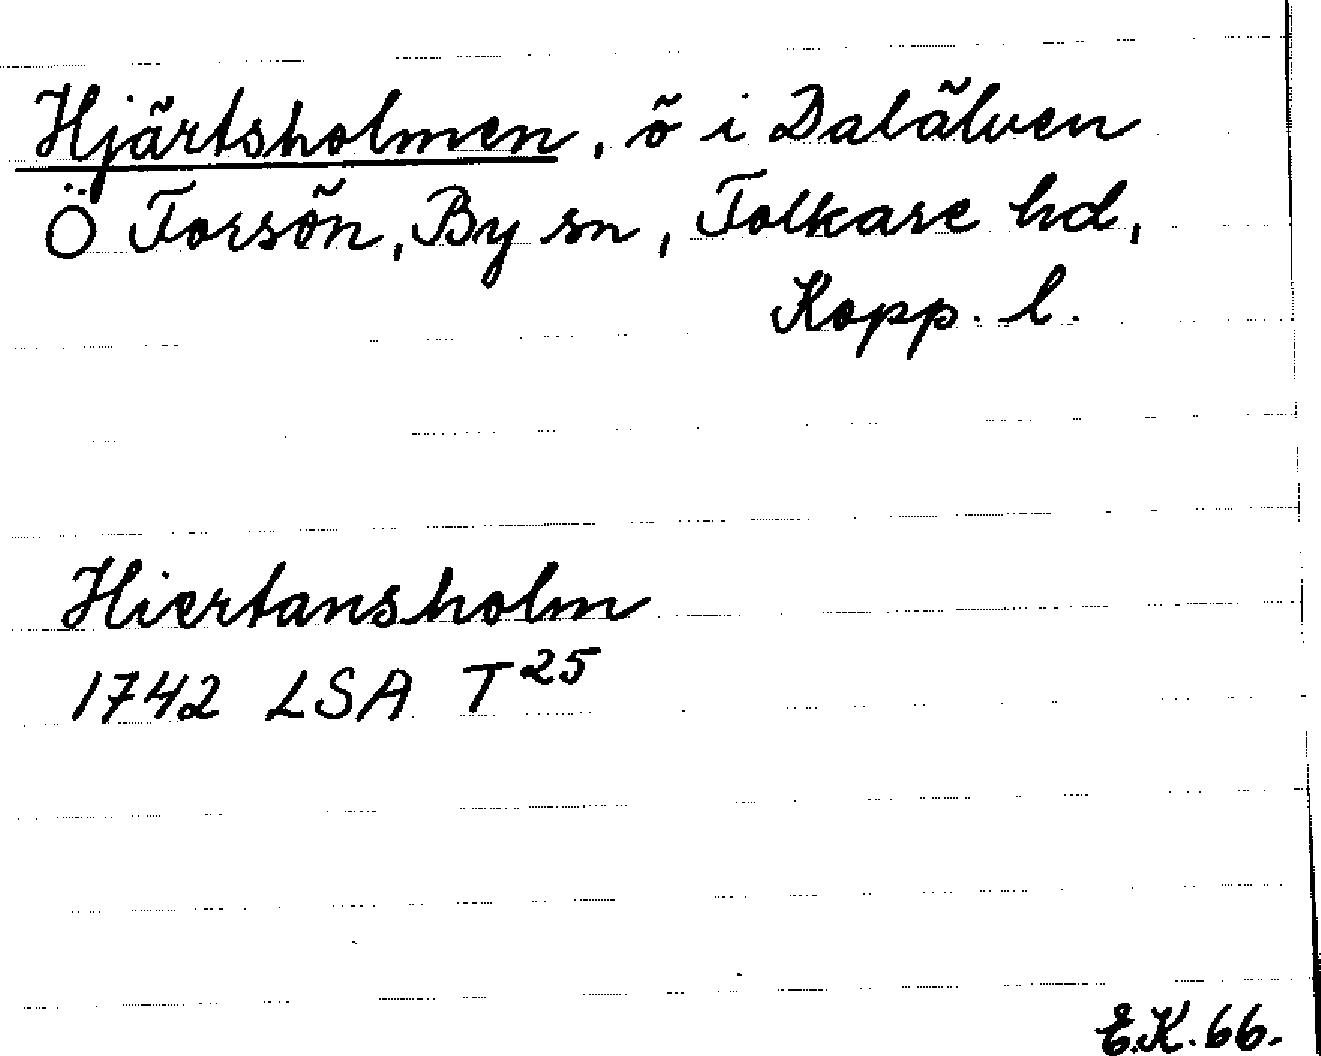 Hjärtsholmen, ö i Dalälven
Ö Forsön, By sn, Folkare hd,
Kopp. l.
Hiertansholm
1742 LSA T25
E.K. 66.